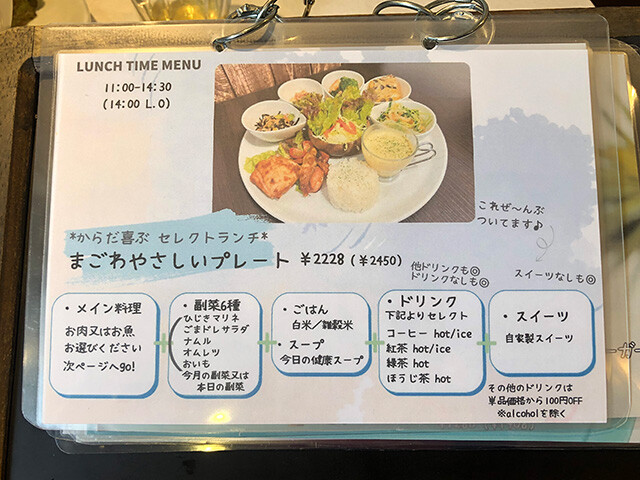 LUNCH TIME MENU
11:00-14:30
(14:00 L.O)
これぜ〜んぶ
ついてます♪
*からだ喜ぶ セレクトランチ*
まごわやさしいプレート ¥2228 (¥2450)
他ドリンクも◎
ドリンクなしも◎
スイーツなしも◎
・メイン料理
お肉又はお魚
お選びください
次ページへgo!
+
・副菜6種
ひじきマリネ
ごまドレサラダ
ナムル
オムレツ
おいも
今月の副菜又は
本日の副菜
+
・ごはん
白米/雑穀米
・スープ
今日の健康スープ
+
・ドリンク
下記よりセレクト
コーヒー hot/ice
紅茶 hot/ice
緑茶 hot
ほうじ茶 hot
+
・スイーツ
自家製スイーツ
その他のドリンクは
単品価格から100円OFF
※alcoholを除く